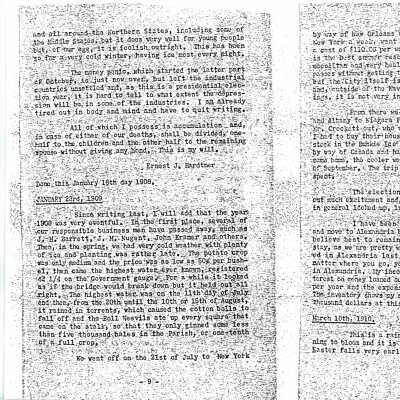 and all around the Northern States, including some of
the Middle States, but it does very well for young people
but, of our age, it is foolish outright. This has been
so far a very cold winter, having ice most every night.
The money panic, which started the latter part
of October, is just now over, but left the industrial
countries unsettled and, as this is a presidential elec-
tion year, it is hard to tell to what extent the depres-
sion will be in some of the industries. I am already
tired out in body and mind and have to quit writing.
All of which I possess is accumulation and,
in case of either of our deaths, shall be divided, one-
half to the children and the other half to the remaining
spouse without giving any bond. This is my will.
Ernest J. Hardtner
Done this January 16th day 1908.
JANUARY 23rd, 1909
Since writing last, I will add that the year
1908 was very eventful. In the first place, several of
our responsible business men have passed away, such as
J. H. Barrett, J. H. Nugent, John Kramer and others.
Then, in the spring, we had very cold weather with plenty
of ice and planting was rather late. The potato crop
was only medium and the price was as low as 50¢ per bush-
el, then came the highest water ever known, registered
42 1/4 on the Government gauge. For a while it looked
as if the bridge would break down but it held out all
right. The highest water was on the 11th day of July
and then, from the 20th until the 10th or 15th of August,
it rained in torrents, which caused the cotton bolls to
fall off and the Boll Weevils ate up every square that
came on the stalk, so that they only ginned some less
than five thousand bales in the Parish, or one-tenth
of a full crop.
We went off on the 31st of July to New York
- 9 -
by way of New Orleans
New York a week, went
a cost of $110.00 per
is the best summer reso
mosquitoes and very heal
posed without getting
but the City itself is
and, outside of the Nav
ings, it is not very in
From there w
and Albany to Niagara F
Mr. Crockett out, who
I had to buy their hous
stock in the Bunkie Ice
by way of Canada and hi
came home, the cooler wea
of September. The trip
spent.
The election
out much excitement and
in general looked up,
I have been
and move to Alexandria
believe best to remain
stay, as we are pretty w
ed in Alexandria last,
matter where you go, yo
in Alexandria. My inco
terest on money loaned ou
per year and the expens
The inventory shows my
thousand dollars at this
March 10th, 1910.
This is a rain
ning to bloom and it is
Easter falls very earl